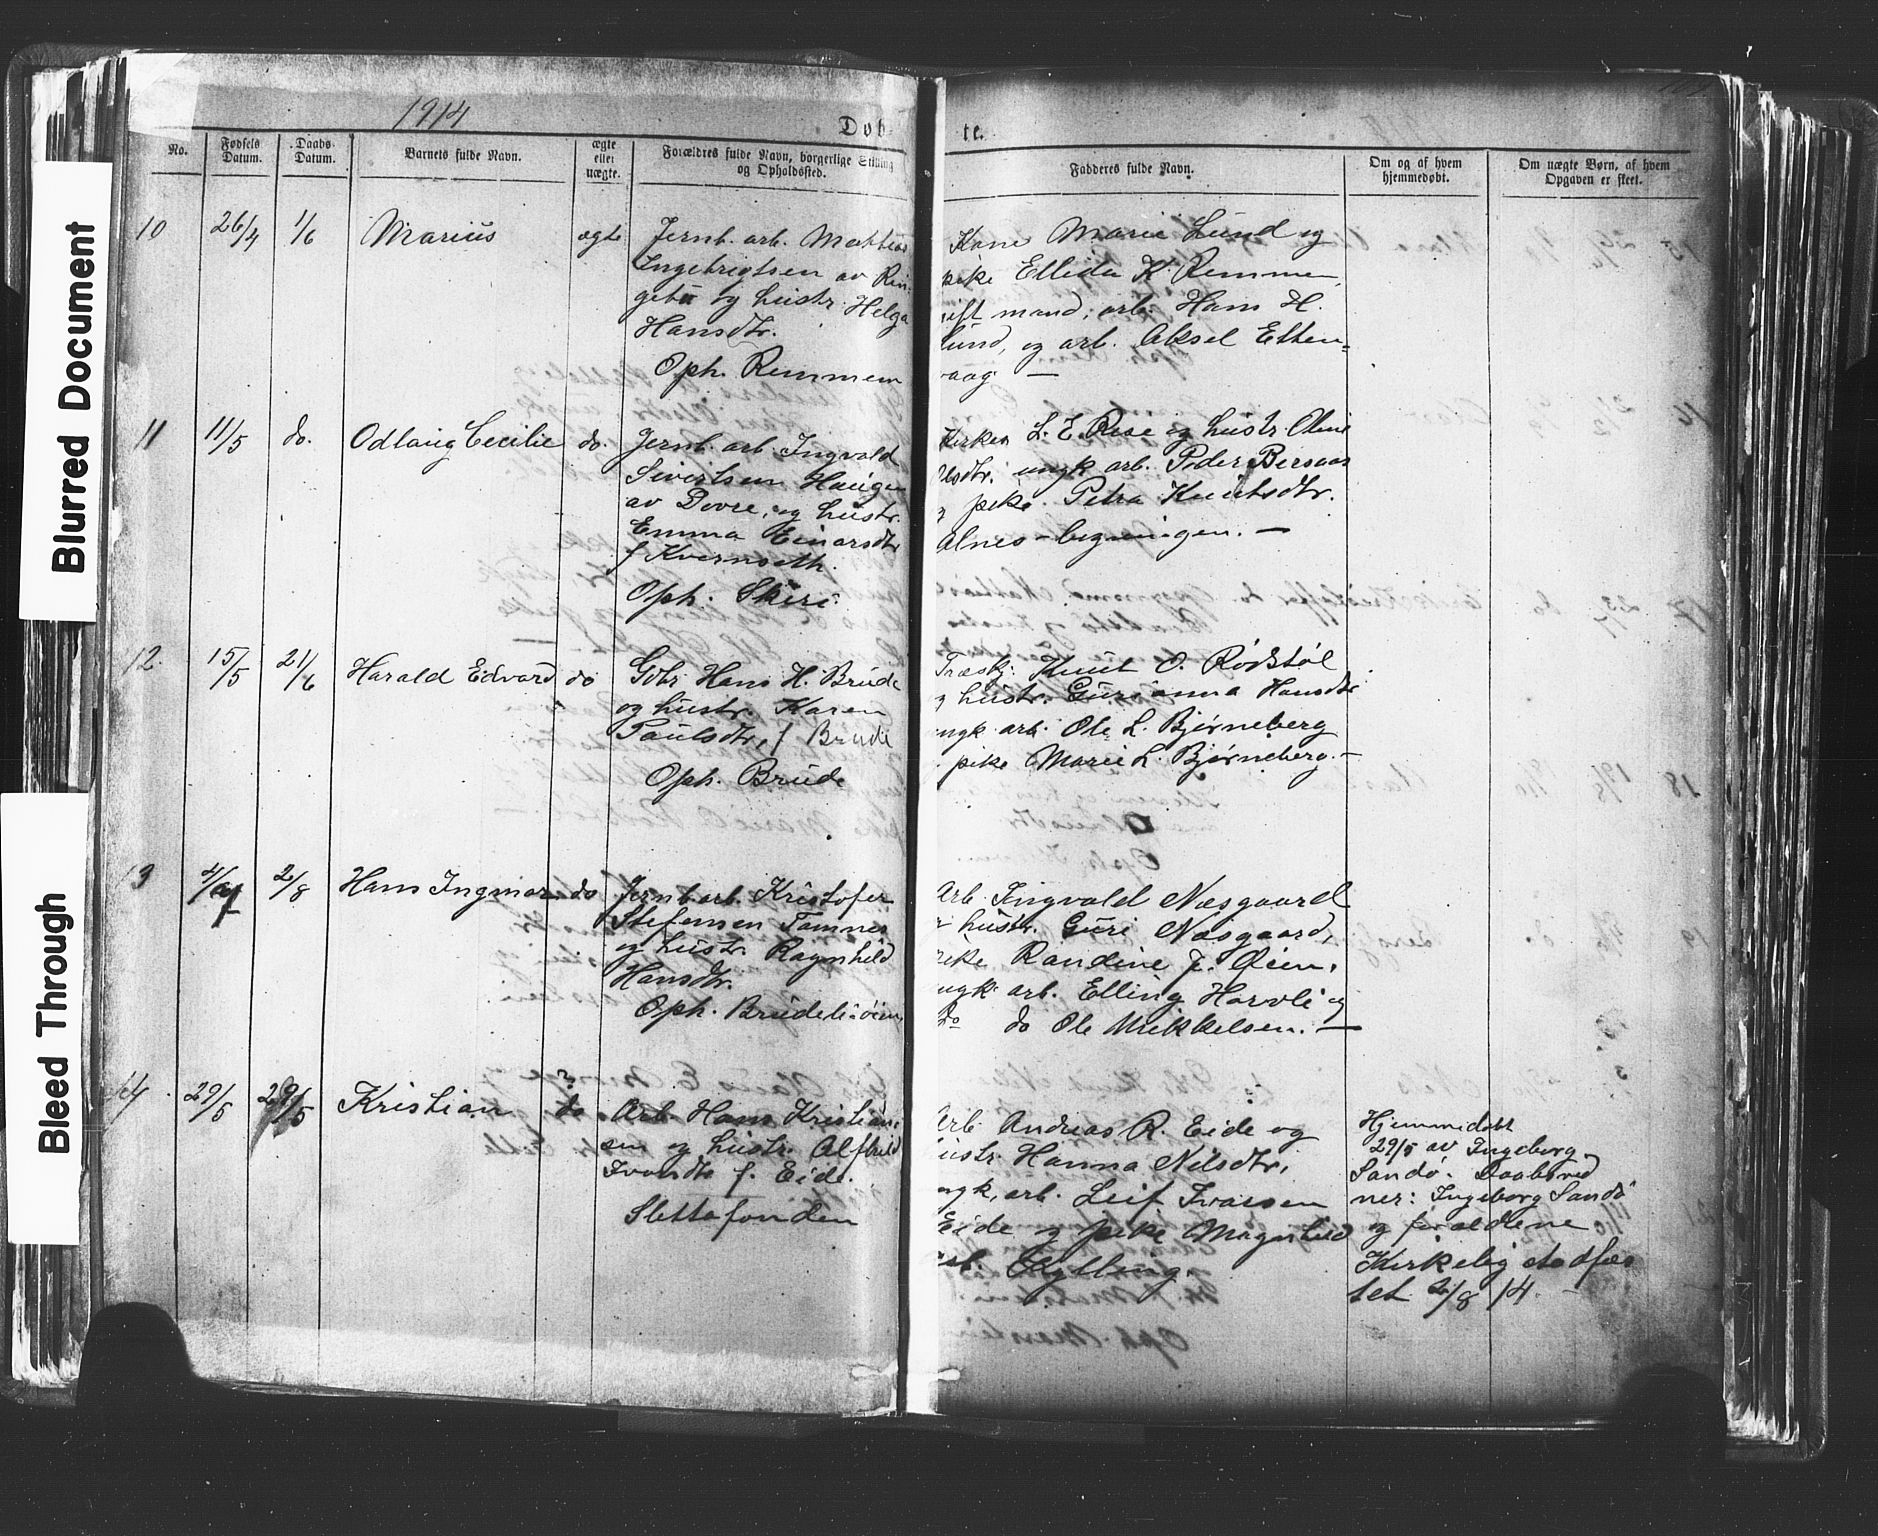 Blurred Document
Bleed Through
1914
Døb
te.
No.
Fødsels Datum.
Daabs Datum.
Barnets fulde Navn.
ægte eller uægte.
Forældres fulde Navn, borgerlige Stilling og Opholdssted.
Fadderes fulde Navn.
Om og af hvem hjemmedøbt.
Om uægte Børn, af hvem Opgaven er skeet.
10 26/4 1/6 Marius ægte
Jernb. arb. Mattias
Ingebrigtsen av Rin-
gebu og hustr. Helga
Hansdtr.
Oph. Remmem
Kone Marie Lund og
pike Ellida K. Remmem
gift mand, arb. Hans H.
Lund, og arb. Aksel Elten=
vaag —
11 11/5 do. Odlaug Cecilie do.
Jernb. arb. Ingvald
Sivertsen Haugen
av Dovre, og hustr.
Emma Einarsdtr
f Kvernseth.
Oph. Skiri
L. E. Rise og hustr. Oline
Olsdtr. ungk arb. Peder
pike Petra Knutsdtr.
Alnes-bygningen. —
12. 15/5 21/6 Harald Edvard do
Gbr. Hans H. Brude
og hustr. Karen
Paulsdtr, f Brude
Oph. Brude
Træskj. Knut O. Rødstøl
og hustr. Gurianna Hansdtr
ungk arb. Ole L. Bjørneberg
pike Marie L. Bjørneberg. —
13 4/7 2/8 Hans Ingmar do
Jernb. arb. Kristofer
Stefensen Tomnes
og hustr. Ragnhild
Hansdtr.
Oph. Brudeliøien
Arb. Ingvald Næsgaard
hustr. Guri Næsgaard,
pike Randine J. Øien,
ungk arb. Elling Horvli og
do do Ole Mikkelsen. —
14 29/5 29/5 Kristian do
Arb. Hans Kristian-
sen og hustr. Alfhild
Ivarsdtr f. Eide.
Slettafonden
Arb. Andreas R. Eide og
hustr. Hanna Nilsdtr,
ungk, arb. Leif Ivarsen
Eide og pike Magnhild
Kylling.
Hjemmedøbt
29/5 av Ingeborg
Sandø. Daabsvid
ner: Ingeborg Sandø
og forældrene
Kirkelig stadfæs
tet 2/8 14. —